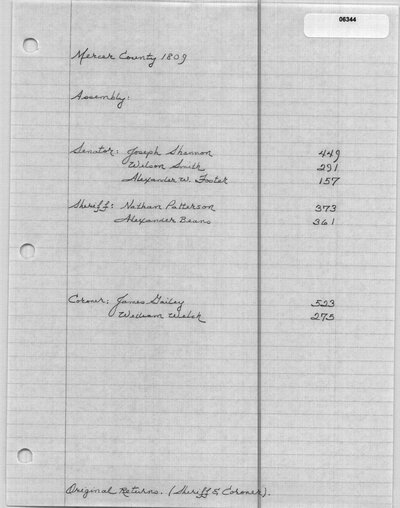 06344
Mercer County 1809
Assembly:
Senator: Joseph Shannon 449
Wilson Smith 291
Alexander W. Foster 157
Sheriff: Nathan Patterson 373
Alexander Beans 361
Coroner: James Gailey 523
William Welsh 275
Original Returns. (Sheriff & Coroner).